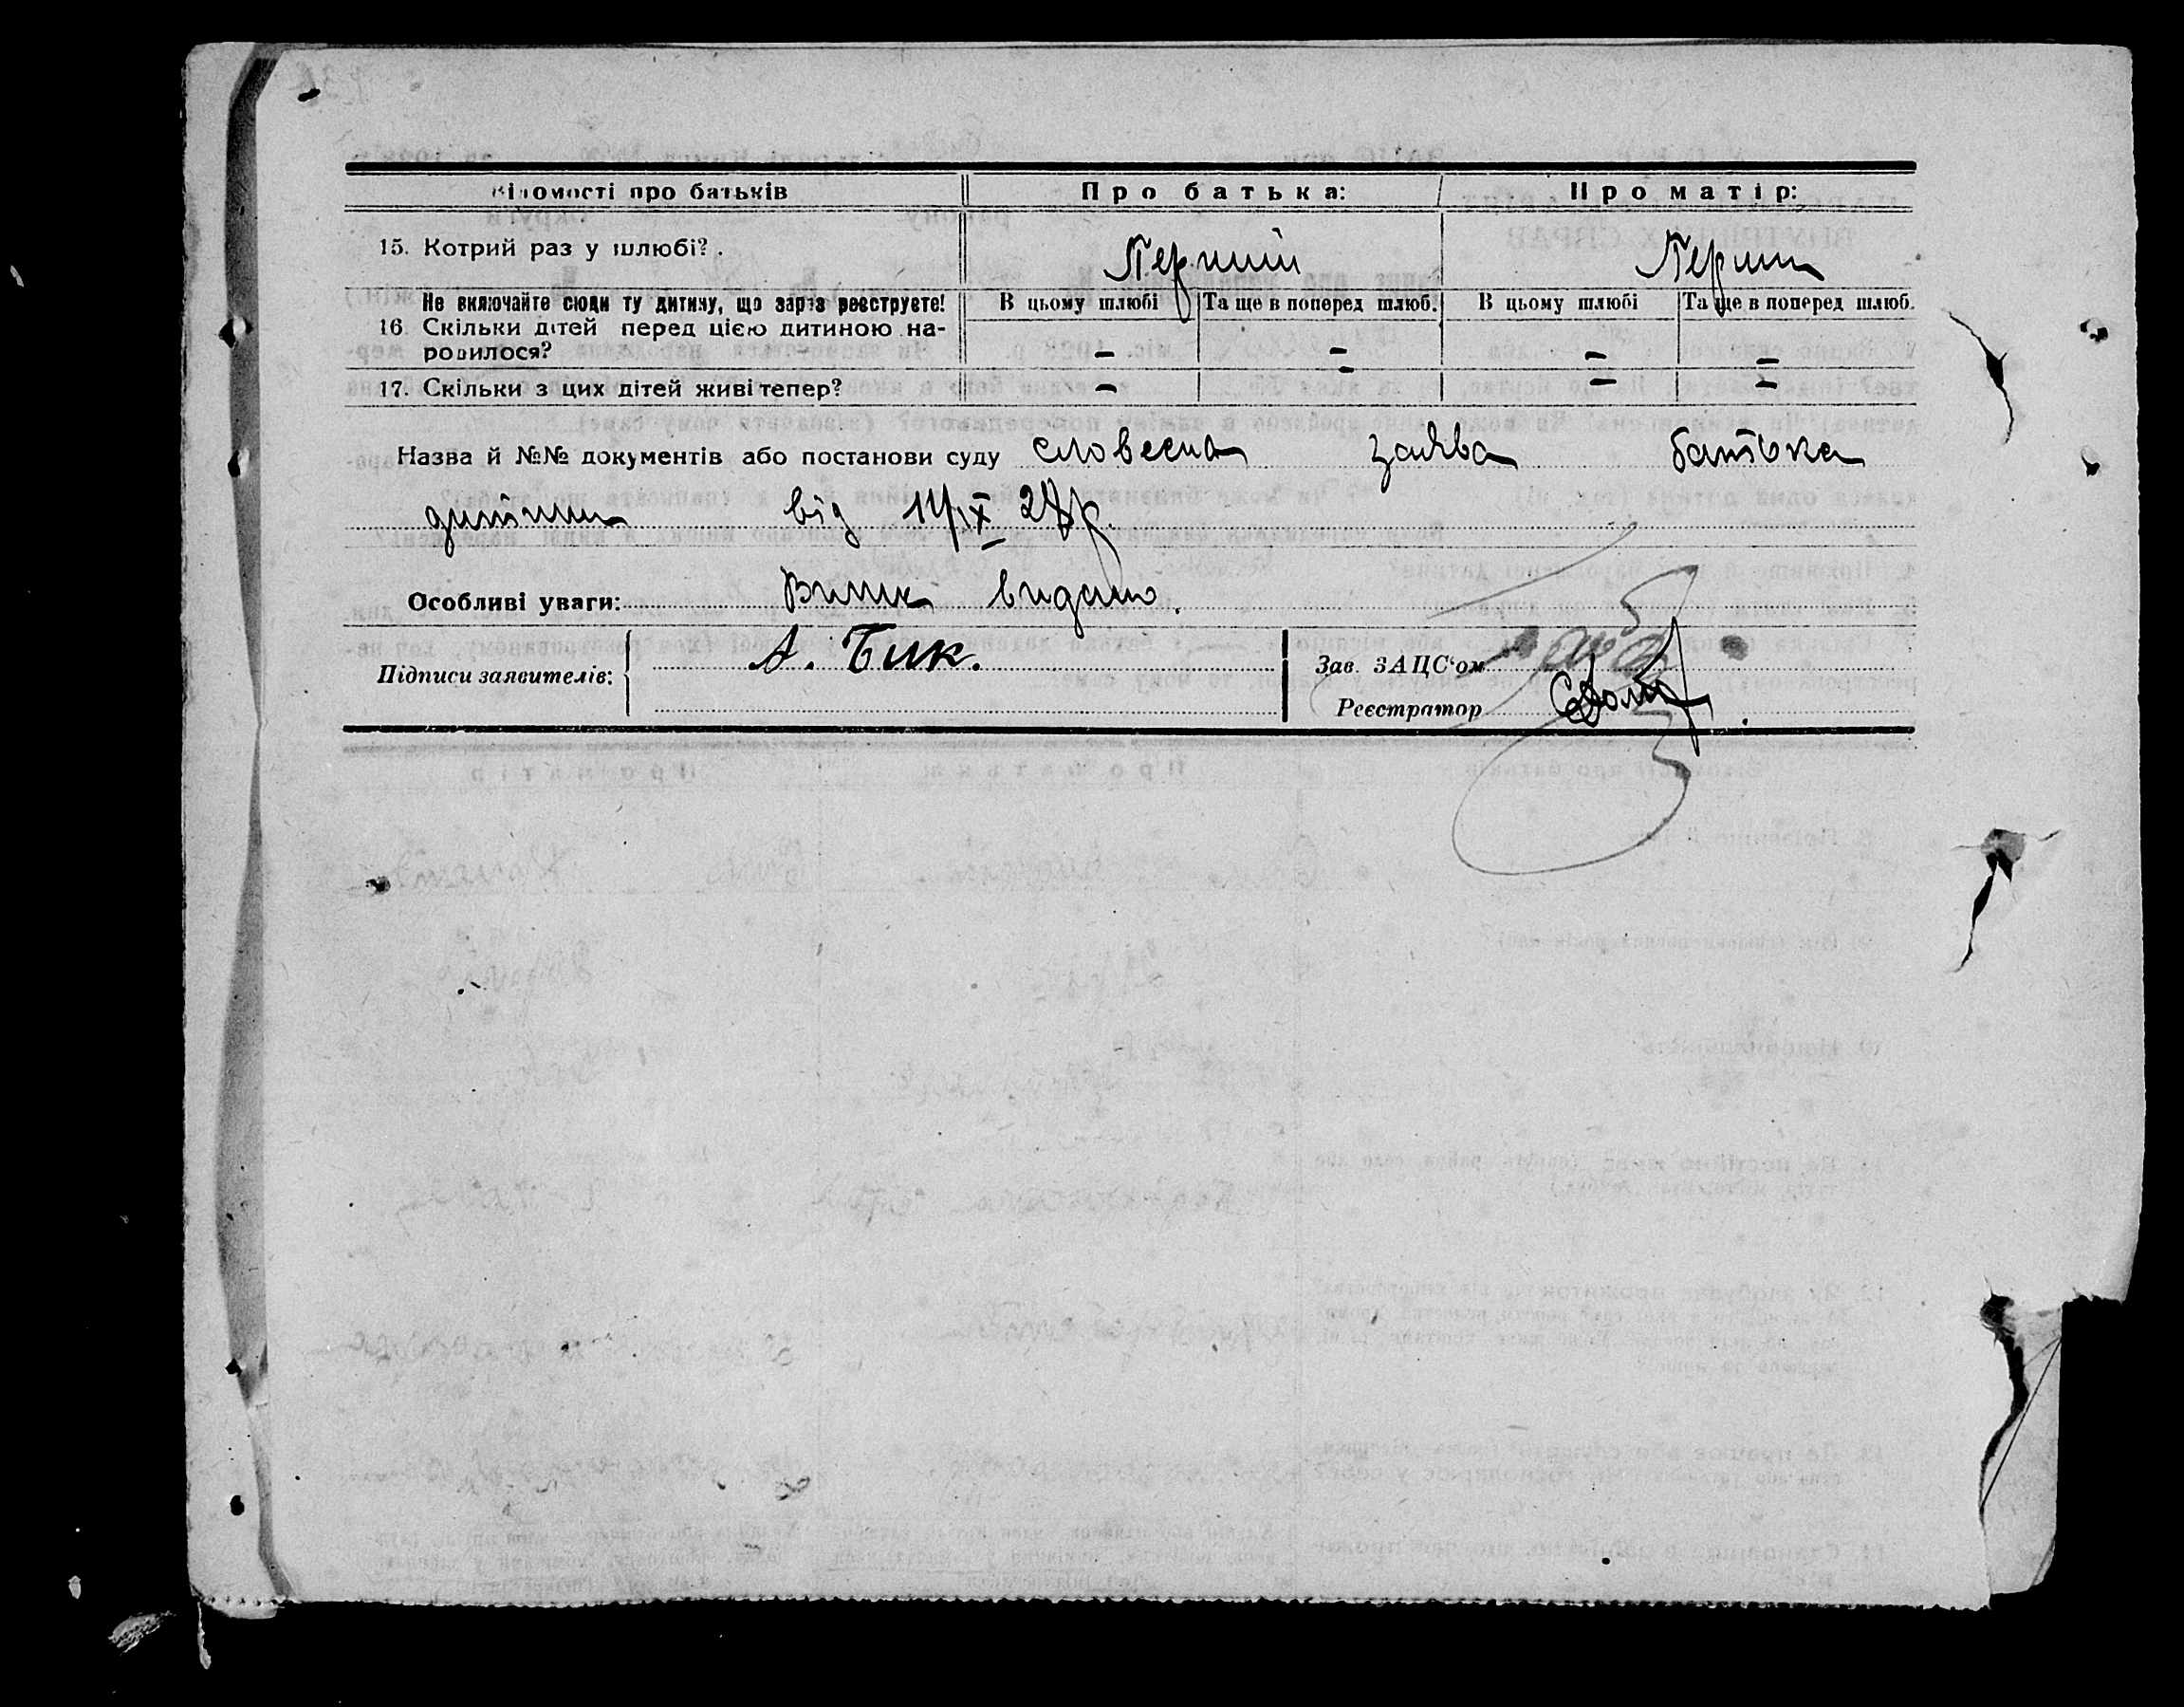 Відомості про батьків Про батька: Про матір:
15. Котрий раз у шлюбі?. Перший Перши
Не включайте сюди ту дитину, що зараз реєструєте! В цьому шлюбі Та ще в поперед шлюб. В цьому шлюбі Та ще в поперед шлюб.
16. Скільки дітей перед цією дитиною на-
родилося? – – – –
17. Скільки з цих дітей живі тепер? – – – –
Назва й №№ документів або постанови суду словесна заява батька
дитини від 14/IX 28 р.
Особливі уваги: видано.
Підписи заявителів: А. Бик. Зав. ЗАЦС'ом
Реєстратор